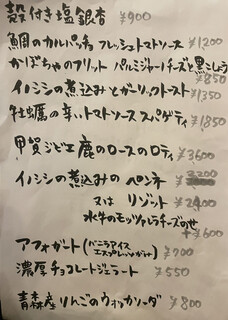 殻付き塩銀杏 ¥900
鯛のカルパッチョ フレッシュトマトソース ¥1200
かぼちゃのフリット パルミジャーノチーズと黒こしょう
¥850
イノシシの煮込みとガーリックトースト ¥1350
牡蠣の辛いトマトソース スパゲティ ¥1850
甲賀ジビエ 鹿のロースのロティ ¥3600
イノシシの煮込みの ペンネ 2200
又は リゾット ¥2400
水牛のモッツァレラチーズのせ
+¥600
アフォガート(バニラアイス
エスプレッソがけ) ¥700
濃厚チョコレートジェラート ¥550
青森産りんごのウォッカソーダ ¥800